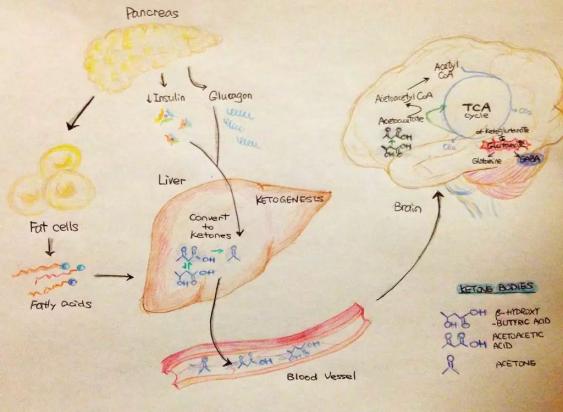 Pancreas
↓Insulin
Glucagon
Fat cells
Fatty acids
Liver
KETOGENESIS
Convert
to
ketones
OH
OH
Blood Vessel
Brain
Acetyl
CoA
Acetoacetyl CoA
Acetoacetate
TCA
cycle
CO₂
CO₂
α-ketoglutarate
Glutamine
GABA
KETONE BODIES
OH
β-HYDROXY
-BUTYRIC ACID
ACETOACETIC
ACID
ACETONE